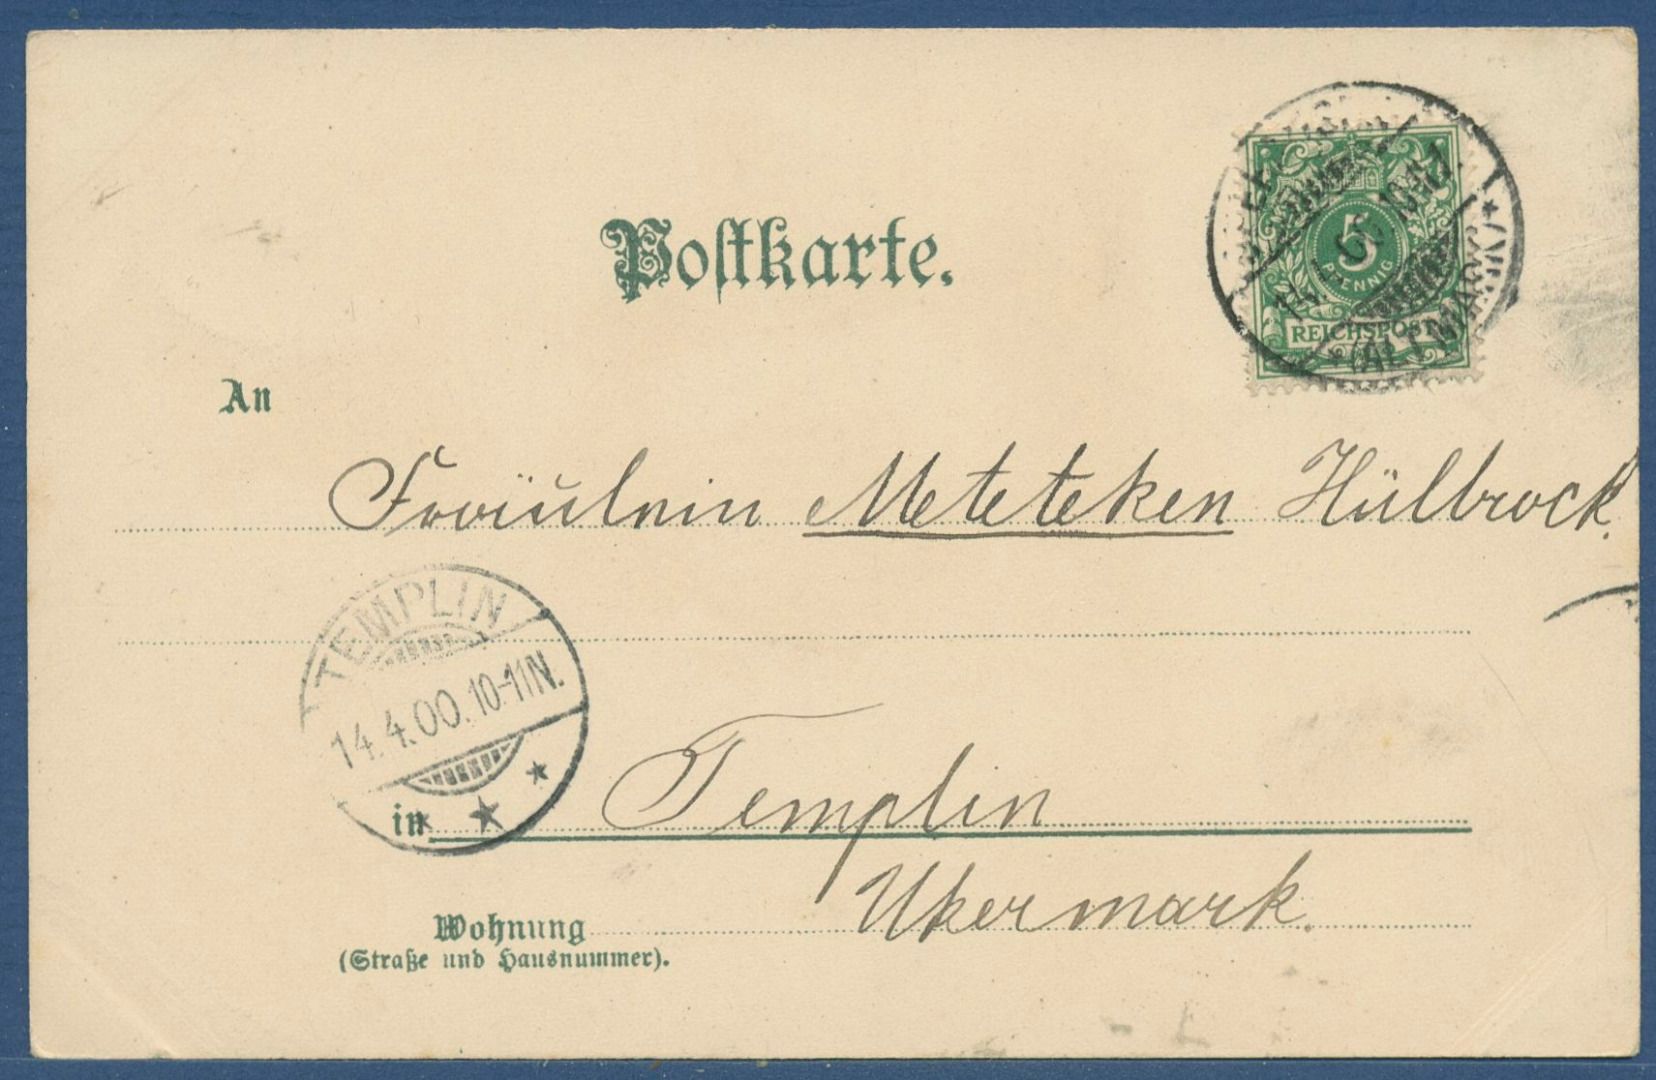 Postkarte.
5
PFENNIG
REICHSPOST
(ALTMARK)
An
Fräulein Meteteken Hülbrock.
TEMPLIN
14.4.00.10-11N.
in Templin
Ukermark.
Wohnung
(Straße und Hausnummer).